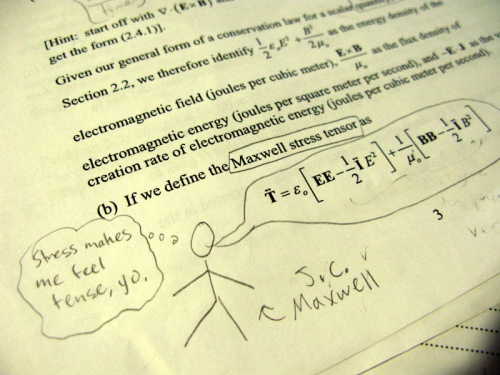 [Hint: start off with ∇·(E×B)
get the form (2.4.1)].
Given our general form of a conservation law for a scalar
Section 2.2, we therefore identify ½ε₀E² + B²/2μ₀ as the energy density of the
electromagnetic field (joules per cubic meter), E×B/μ₀ as the flux density of
electromagnetic energy (joules per square meter per second), and -E·J as the
creation rate of electromagnetic energy (joules per cubic meter per second).
(b) If we define the Maxwell stress tensor as
T̈ = ε₀[EE-½ÏE²]+1/μ₀[BB-½ÏB²]
3
Stress makes
me feel
tense, yo.
J.C.
Maxwell